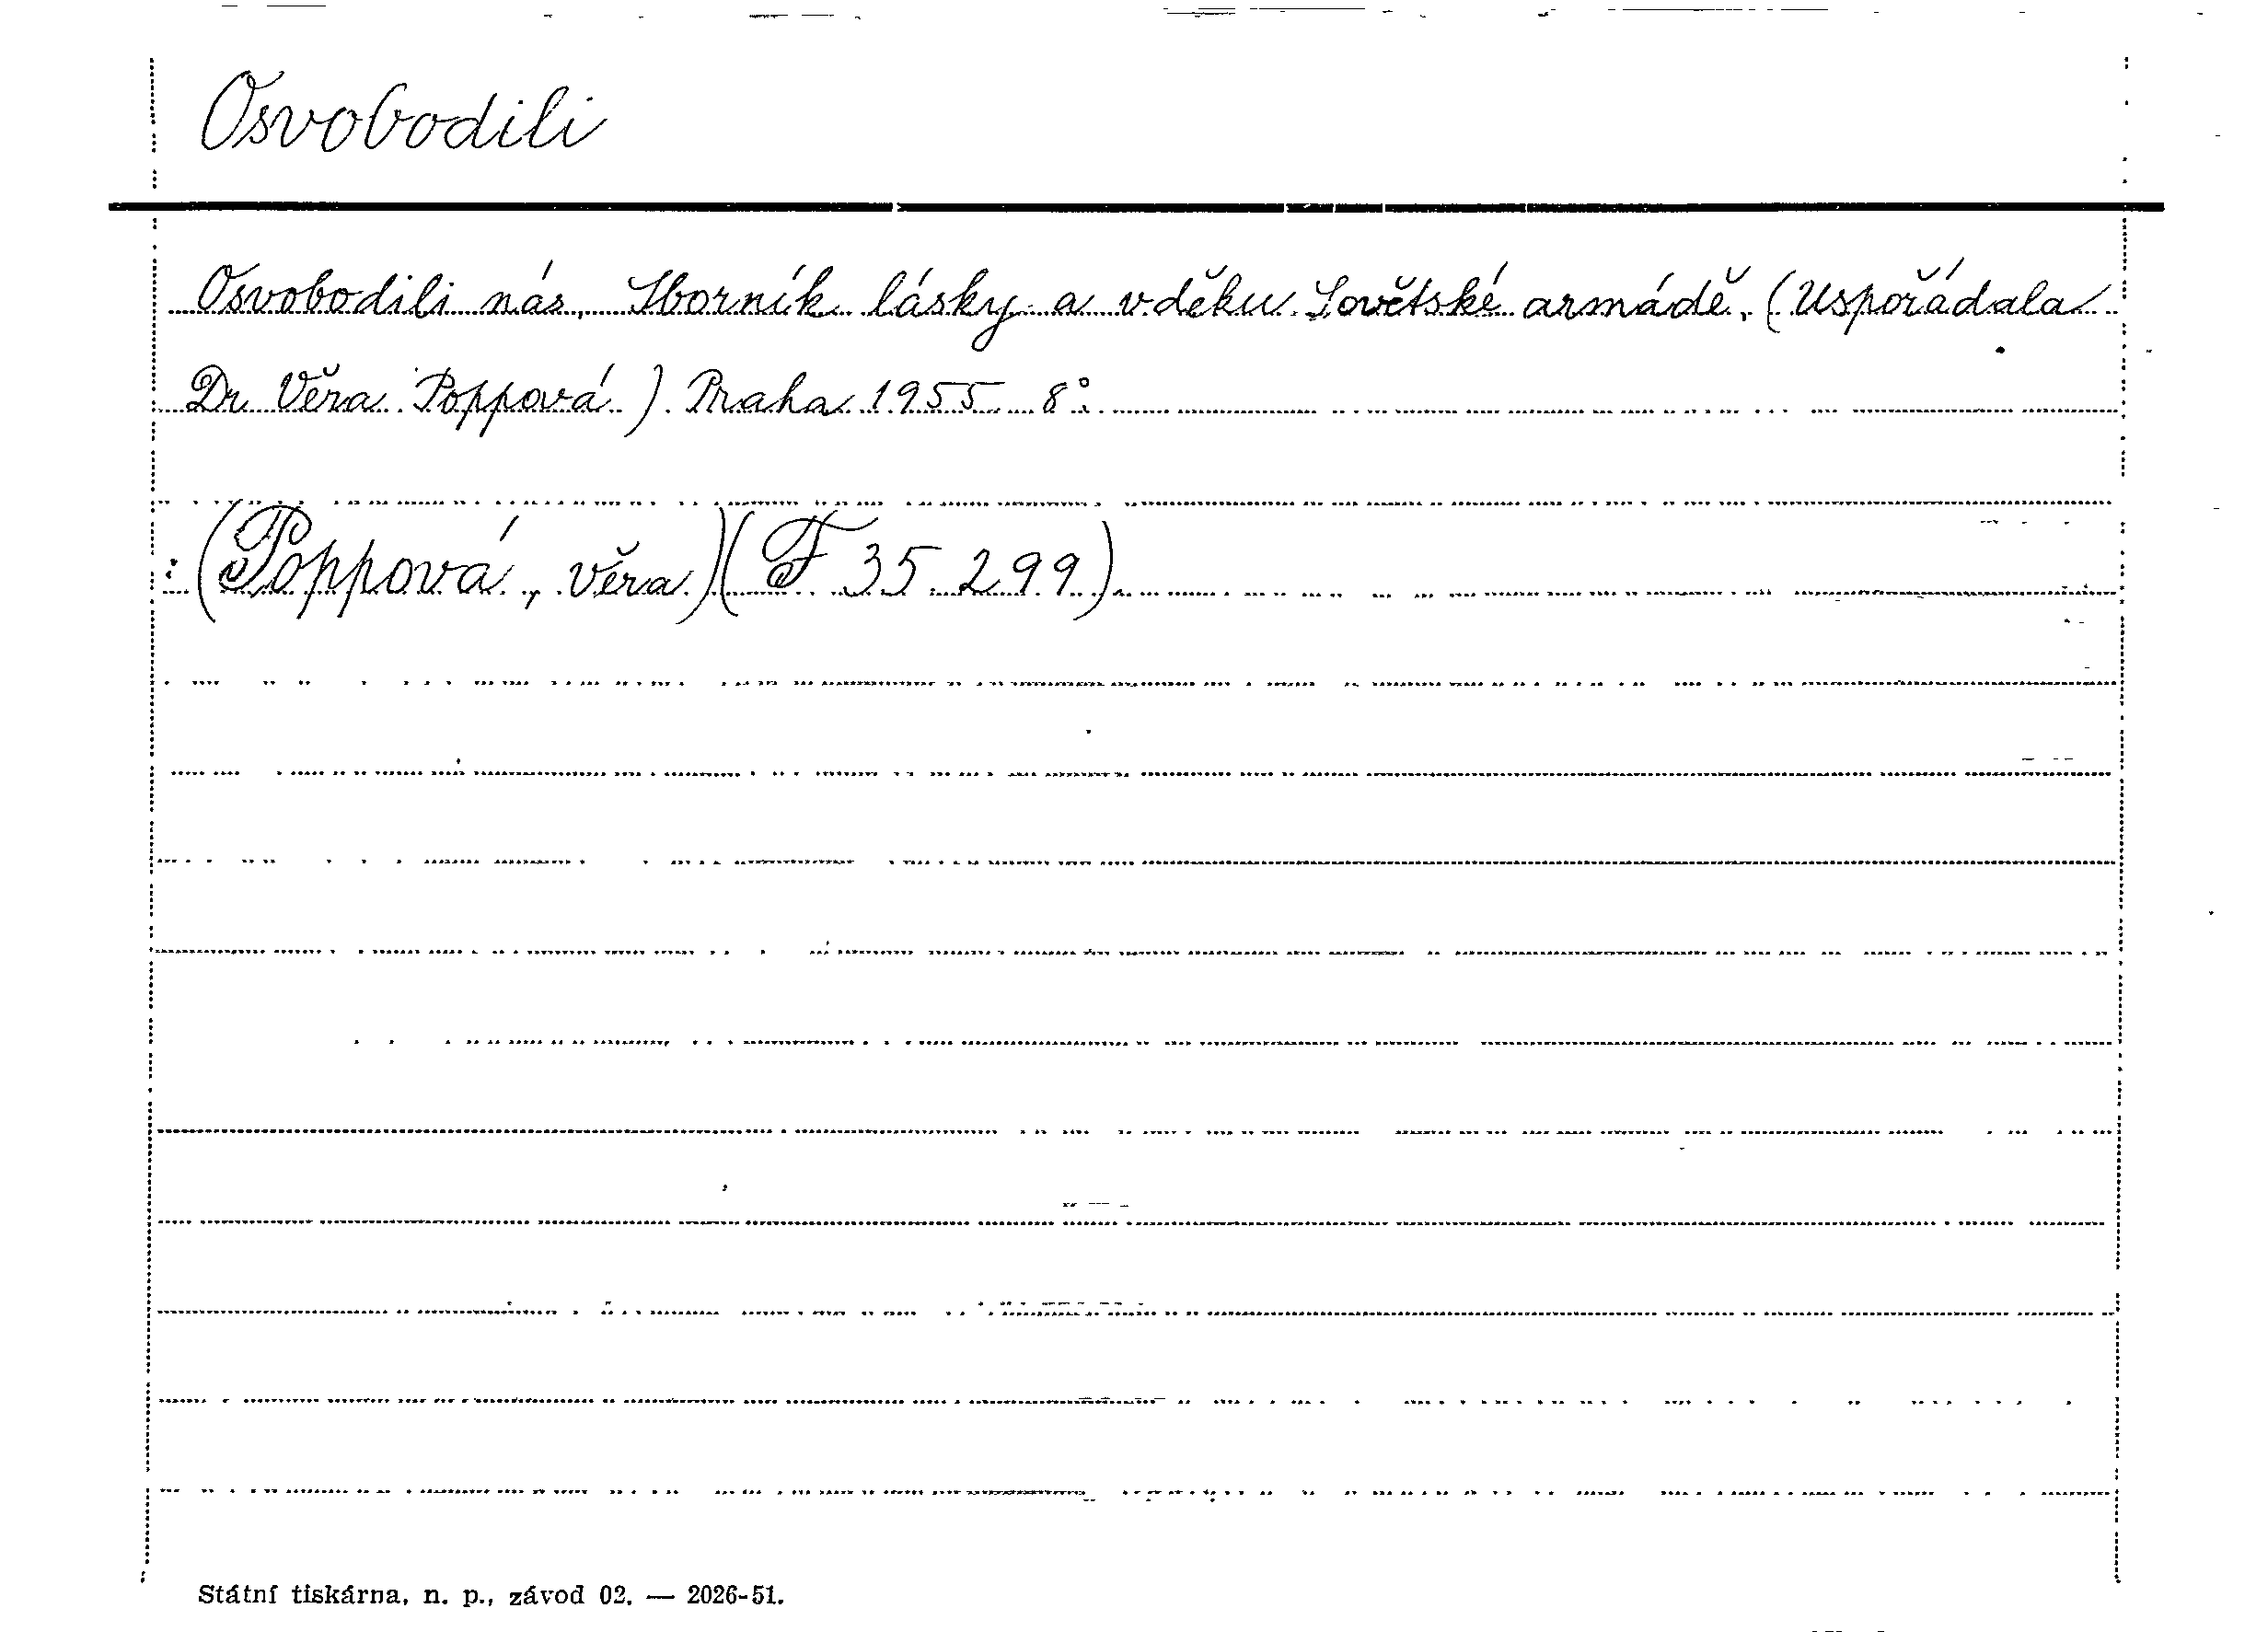 Osvobodili
Osvobodili nás, Sborník lásky a vděku Sovětské armádě. (Uspořádala
Dr Věra Poppová). Praha 1955 8°.
: (Poppová, Věra)(F 35 299).
Státní tiskárna, n. p., závod 02. — 2026-51.